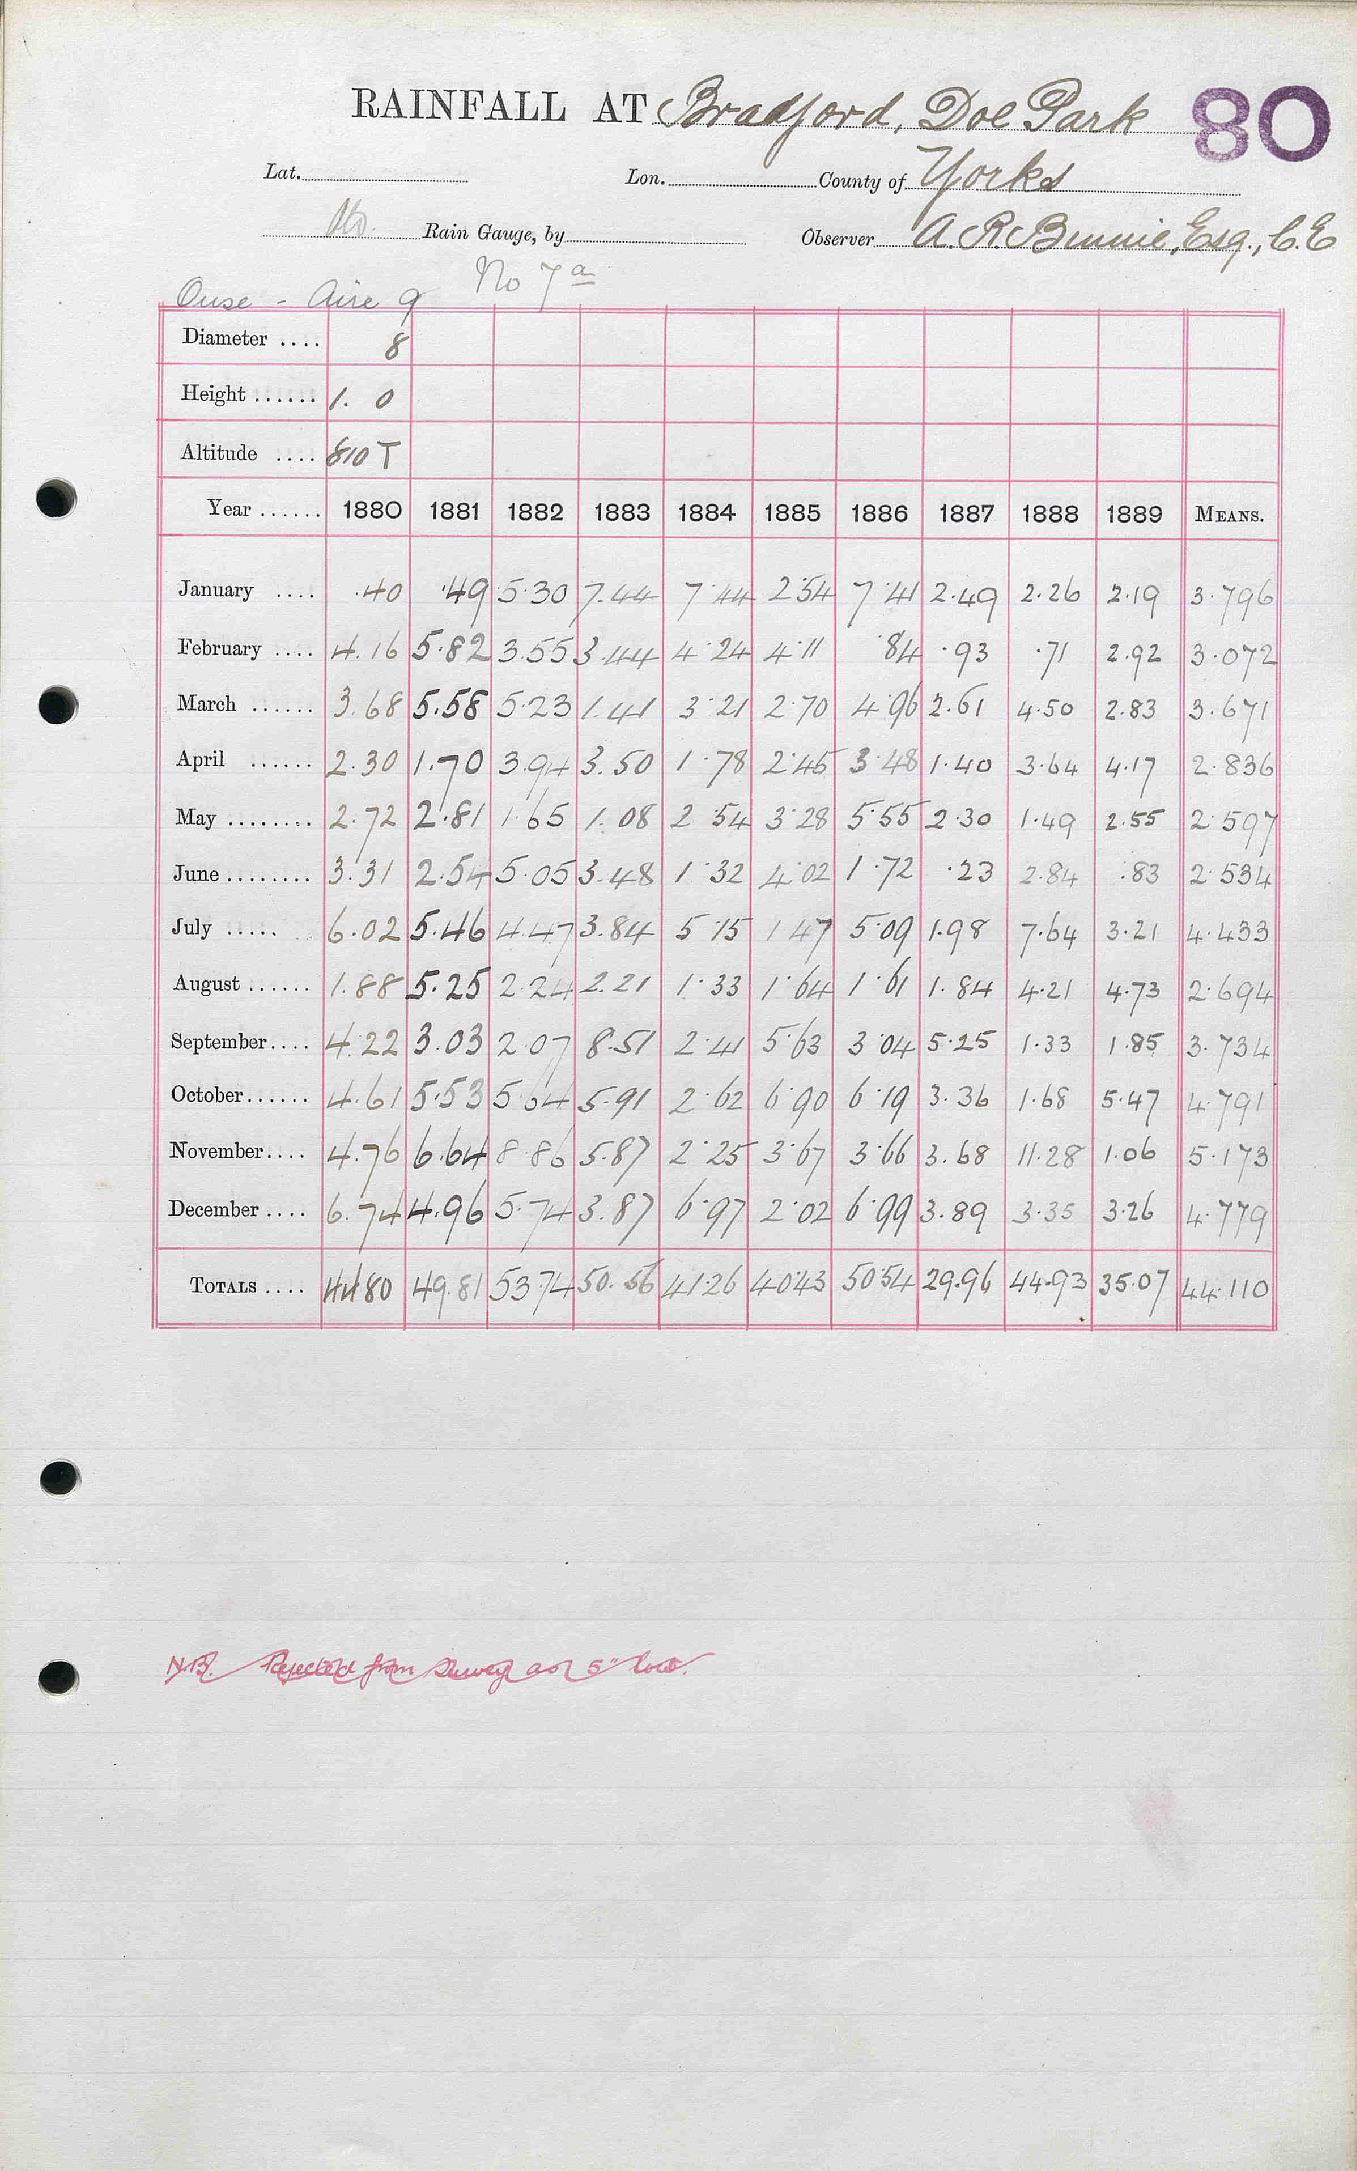 RAINFALL AT Bradford, Doe Park 80
Lat. Lon. County of Yorks
Rain Gauge, by Observer A. R. Binnie, Esq., C.E
Ouse - Aire 9 No 7a
Diameter .... 8
Height ...... 1. 0
Altitude .... 810 T
Year ...... 1880 1881 1882 1883 1884 1885 1886 1887 1888 1889 MEANS.
January .... .40 .49 5.30 7.44 7.44 2.54 7.41 2.49 2.26 2.19 3.796
February .... 4.16 5.82 3.55 3.44 4.24 4.11 .84 .93 .71 2.92 3.072
March ...... 3.68 5.58 5.23 1.41 3.21 2.70 4.96 2.61 4.50 2.83 3.671
April ...... 2.30 1.70 3.94 3.50 1.78 2.45 3.48 1.40 3.64 4.17 2.836
May ........ 2.72 2.81 1.65 1.08 2.54 3.28 5.55 2.30 1.49 2.55 2.597
June ........ 3.31 2.54 5.05 3.48 1.32 4.02 1.72 .23 2.84 .83 2.534
July ..... 6.02 5.46 4.47 3.84 5.15 1.47 5.09 1.98 7.64 3.21 4.433
August ...... 1.88 5.25 2.24 2.21 1.33 1.64 1.61 1.84 4.21 4.73 2.694
September.... 4.22 3.03 2.07 8.51 2.41 5.63 3.04 5.25 1.33 1.85 3.734
October...... 4.61 5.53 5.64 5.91 2.62 6.90 6.19 3.36 1.68 5.47 4.791
November.... 4.76 6.64 8.86 5.87 2.25 3.67 3.66 3.68 11.28 1.06 5.173
December .... 6.74 4.96 5.74 3.87 6.97 2.02 6.99 3.89 3.35 3.26 4.779
TOTALS .... 44.80 49.81 53.74 50.56 41.26 40.43 50.54 29.96 44.93 35.07 44.110
N.B. Rejected from Survey as 5" low.